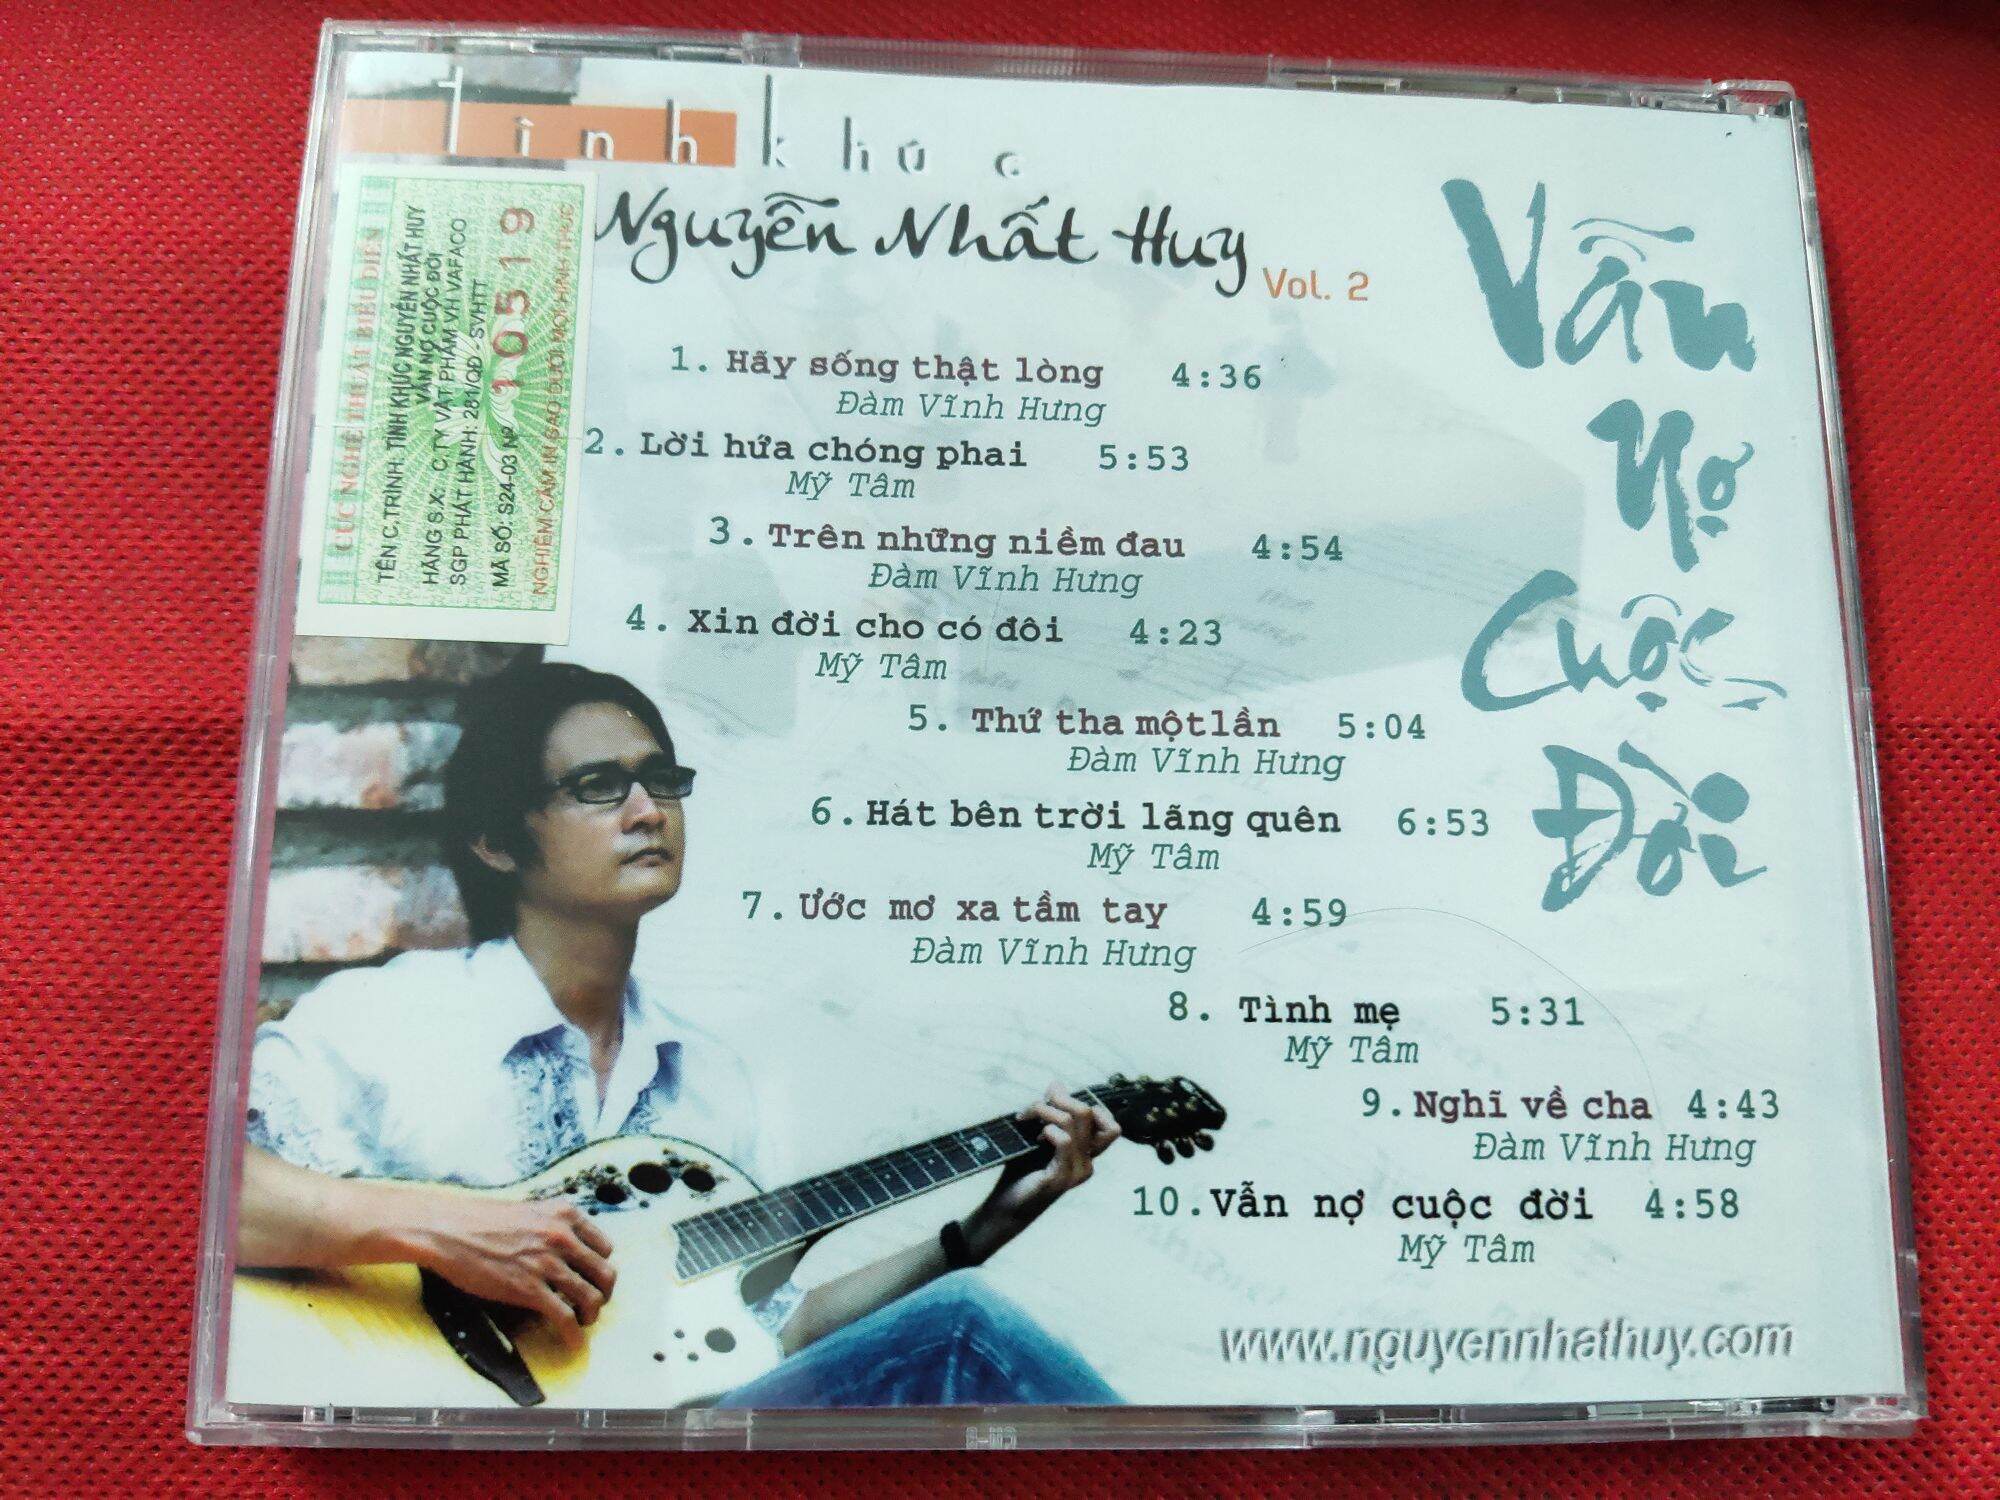 tình khúc
Nguyễn Nhất Huy Vol. 2
Vẫn
Nợ
Cuộc
Đời
CỤC NGHỆ THUẬT BIỂU DIỄN
TÊN C.TRÌNH: TÌNH KHÚC NGUYỄN NHẤT HUY
VẪN NỢ CUỘC ĐỜI
HÃNG S.X: C.TY VẬT PHẨM VH VAFACO
SGP PHÁT HÀNH: 281/QĐ - SVHTT
MÃ SỐ: S24-03 Nº 10519
NGHIÊM CẤM IN SAO DƯỚI MỌI HÌNH THỨC
1. Hãy sống thật lòng 4:36
Đàm Vĩnh Hưng
2. Lời hứa chóng phai 5:53
Mỹ Tâm
3. Trên những niềm đau 4:54
Đàm Vĩnh Hưng
4. Xin đời cho có đôi 4:23
Mỹ Tâm
5. Thứ tha mộtlần 5:04
Đàm Vĩnh Hưng
6. Hát bên trời lãng quên 6:53
Mỹ Tâm
7. Ước mơ xa tầm tay 4:59
Đàm Vĩnh Hưng
8. Tình mẹ 5:31
Mỹ Tâm
9. Nghĩ về cha 4:43
Đàm Vĩnh Hưng
10. Vẫn nợ cuộc đời 4:58
Mỹ Tâm
www.nguyennhathuy.com